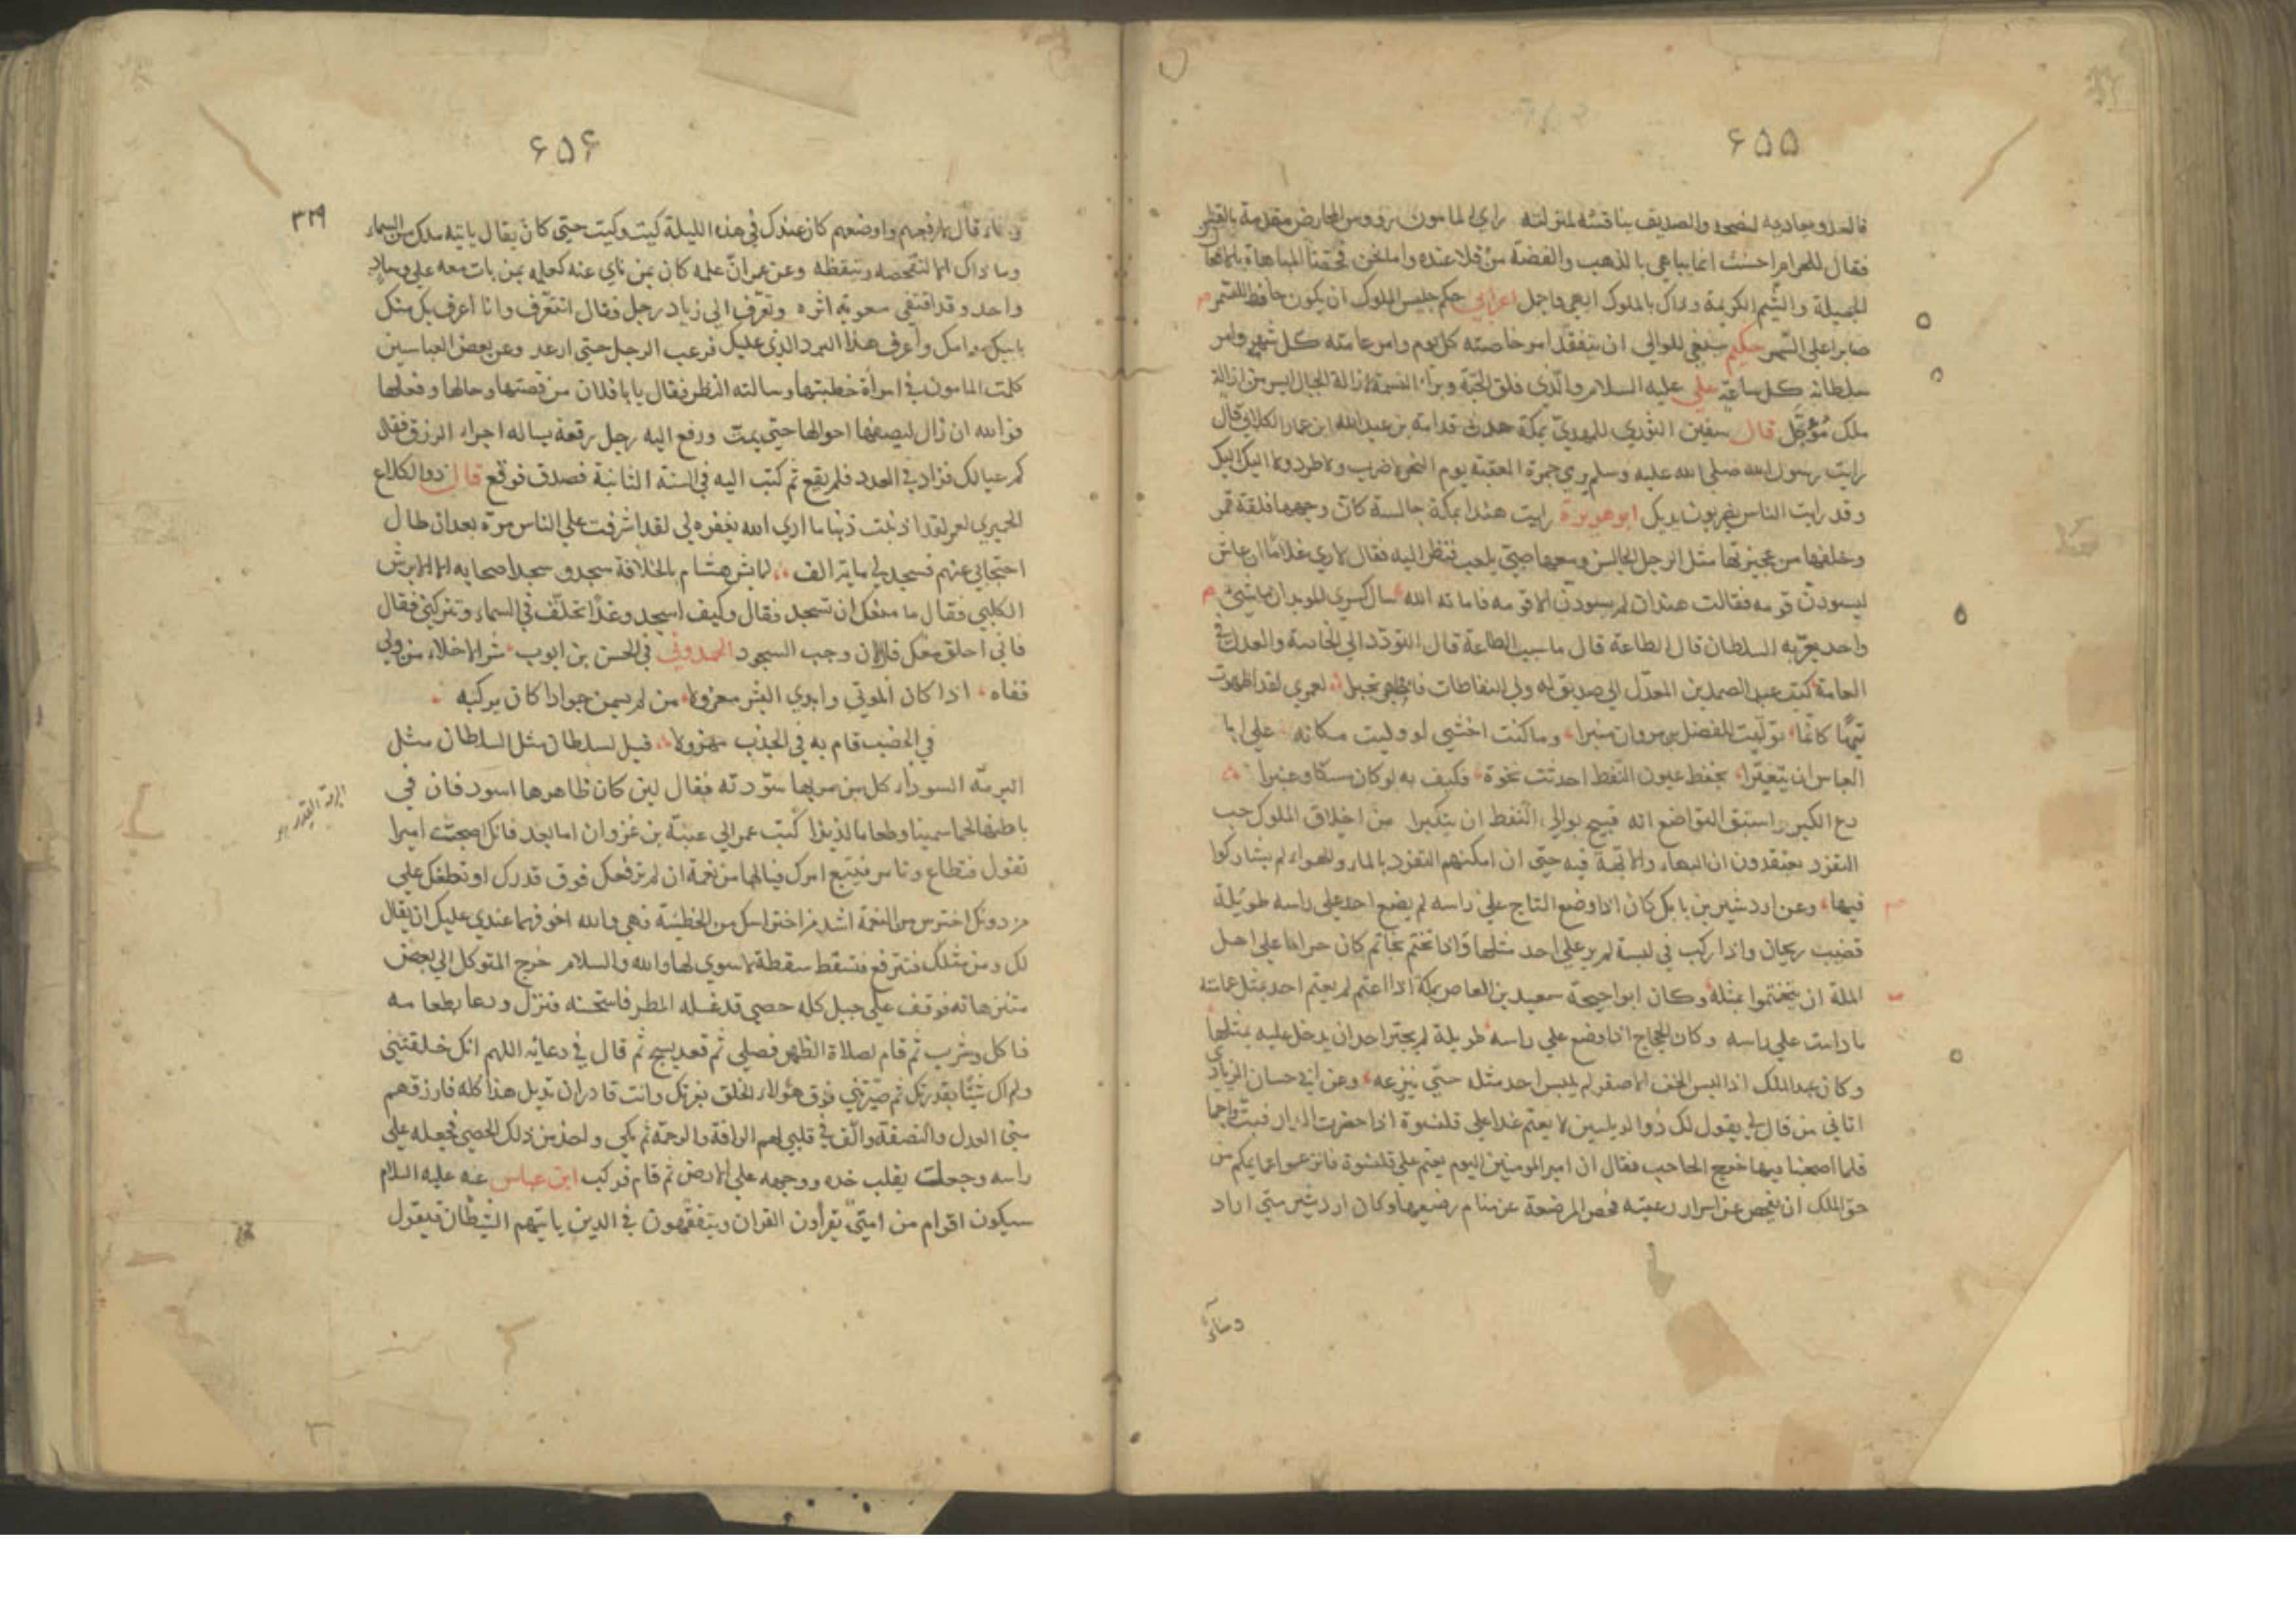 ۶۵۵
فالعدو يعاديه لنصحه والصديق ينافسه لمنزلته راي المامون رووس المحارض مقدمة بالفضة
فقال للهرام احسنت انما يباهي بالذهب والفضة من قلا عنده واما نحن فحقنا المباهاة بالافعال
الجميلة والشيم الكريمة وذاك بالملوك ابهى واجمل اعرابي حكم جليس الملوك ان يكون حافظا للسمر
صابرا على السهر حكيم ينبغي للوالي ان يتفقد امر خاصته كل يوم وامر عامته كل شهر وامر
سلطانه كل ساعة علي عليه السلام والذي فلق الحبة وبرأ النسمة لازالة الجبال ايسر من ازالة
ملك مؤجل قال سفين الثوري للمهدي بمكة حدث قدامة بن عبد الله ابن عمار الكلابي قال
رايت رسول الله صلى الله عليه وسلم يرمي جمرة العقبة يوم النحر لا ضرب ولا طرد ولا اليك اليك
وقد رايت الناس يضربون بين يديك ابو هريرة رايت هندا بمكة جالسة كان وجهها فلقة قمر
وخلفها من عجيزتها مثل الرجل الجالس ومعها صبي يلعب فنظر اليه فقال لاري غلاما ان عاش
ليسودن قومه فقالت هند ان لم يسودن الا قومه فاماته الله سال كسرى الموبذان ما شيء
واحد يعز به السلطان قال الطاعة قال ما سبب الطاعة قال التودد الى الخاصة والعدل في
العامة كتب عبد الصمد بن المعذل الى صديق له ولي النفاطات فاظهر تجبرا لعمري لقد اظهرت
تيها كانما توليت للفضل بن مروان منبرا وما كنت اخشى لو وليت مكانه علي ابا
العباس ان يتغيرا بحفظ عيون النفط احدثت نخوة فكيف به لو كان مسكا وعنبرا
دع الكبر واستبق التواضع انه قبيح بوالي النفط ان يتكبرا من اخلاق الملوك حب
التفرد يعتقدون ان البهاء والابهة فيه حتى ان امكنهم التفرد بالماء والهواء لم يشاركوا
فيها وعن اردشير بن بابك كان اذا وضع التاج على راسه لم يضع احد على راسه طويلة
قضيب ريحان واذا ركب في لبسة لم ير على احد مثلها واذا تختم بخاتم كان حراما على اهل
الملة ان يتختموا بمثله وكان ابو احيحة سعيد بن العاص بمكة اذا اعتم لم يعتم احد بمثل عمامته
ما دامت على راسه وكان الحجاج اذا وضع على راسه طويلة لم يجترا احد ان يدخل عليه بمثلها
وكان عبد الملك اذا لبس الخف الاصفر لم يلبس احد مثله حتى ينزعه وعن ابي حسان الزيادي
اتاني من قال لي يقول لك ذو الرياستين لا يعتم غدا على قلنسوة اذا حضرت الدار فبت واجما
فلما اصبحنا فيها خرج الحاجب فقال ان امير المومنين اليوم يعتم على قلنسوة فانزعوا عمايمكم من
حق الملك ان يفحص عن اسرار رعيته فحص المرضعة عن منام رضيعها وكان اردشير متى اراد
۶۵۶
۳۲۹
قال لارفعهم واوضعهم كان عندك في هذه الليلة كيت وكيت حتى كان يقال ياتيه ملك من السماء
وما ذاك الا لتفحصه وتيقظه وعن عمر ان علمه كان بمن ناي عنه كعلمه بمن بات معه على وساد
واحد وقد اقتفى معوية اثره وتعرف الى زياد رجل فقال اتتعرف وانا اعرف بك منك
بابيك وامك واعرف هذا البرد الذي عليك فرعب الرجل حتى ارعد وعن بعض العباسيين
كلمت المامون في امرأة خطبتها وسالته النظر فقال يا با فلان من قصتها وحالها وفعلها
فوالله ان زال ليصفها احوالها حتى بهت ورفع اليه رجل رقعة يساله اجراء الرزق فقال
كم عيالك فزاد في العدد فلم يوقع ثم كتب اليه في السنة الثانية فصدق فوقع قال ذو الكلاع
الحميري لعمر لقد اذنبت ذنبا ما اري الله يغفره لي لقد اشرفت على الناس مرة بعد ان طال
احتجابي عنهم فسجد لي ماية الف لما بشر هشام بالخلافة سجد وسجد اصحابه الا الابرش
الكلبي فقال ما منعك ان تسجد فقال وكيف اسجد وغدا تحلق في السماء وتتركني فقال
فاني احلق معك قال الان وجب السجود الحمدوني في الحسن بن ايوب شر الاخلاء من ولى
قفاه اذا كان المولى وابدى البشر معزولا من لم يسمن جوادا كان يركبه
في الخصب قام به في الجدب مهزولا قيل لسلطان مثل السلطان مثل
البرمة السوداء كل من مر بها سودته فقال لين كان ظاهرها اسود فان في
باطنها لحما سمينا وطعاما لذيذا كتب عمر الى عتبة بن غزوان اما بعد فانك اصبحت اميرا
تقول فتطاع وتامر فيتبع امرك فيالها من نعمة ان لم ترفعك فوق قدرك او تطغك على
من دونك احترس من النعمة اشد من احتراسك من الخطيئة فهي والله اخوفهما عندي عليك ان يقال
لك ومن مثلك فتترفع فتسقط سقطة لا سوي لها والله والسلام خرج المتوكل الى بعض
متنزهاته فوقف على جبل كله حصى قد غسله المطر فاستحسنه فنزل ودعا بطعامه
فاكل وشرب ثم قام لصلاة الظهر فصلى ثم قعد يسبح ثم قال في دعائه اللهم انك خلقتني
ولم اك شيئا بقدرتك ثم صيرتني فوق هؤلاء الخلق بعزتك وانت قادر ان تديل هذا كله فارزقهم
مني العدل والنصفة والق في قلبي لهم الرافة والرحمة ثم بكى واخذ من ذلك الحصى فجعله على
راسه وجعلت يقلب خده ووجهه على الارض ثم قام فركب ابن عباس عنه عليه السلام
سيكون اقوام من امتي يقرأون القران ويتفقهون في الدين ياتيهم الشيطان فيقول